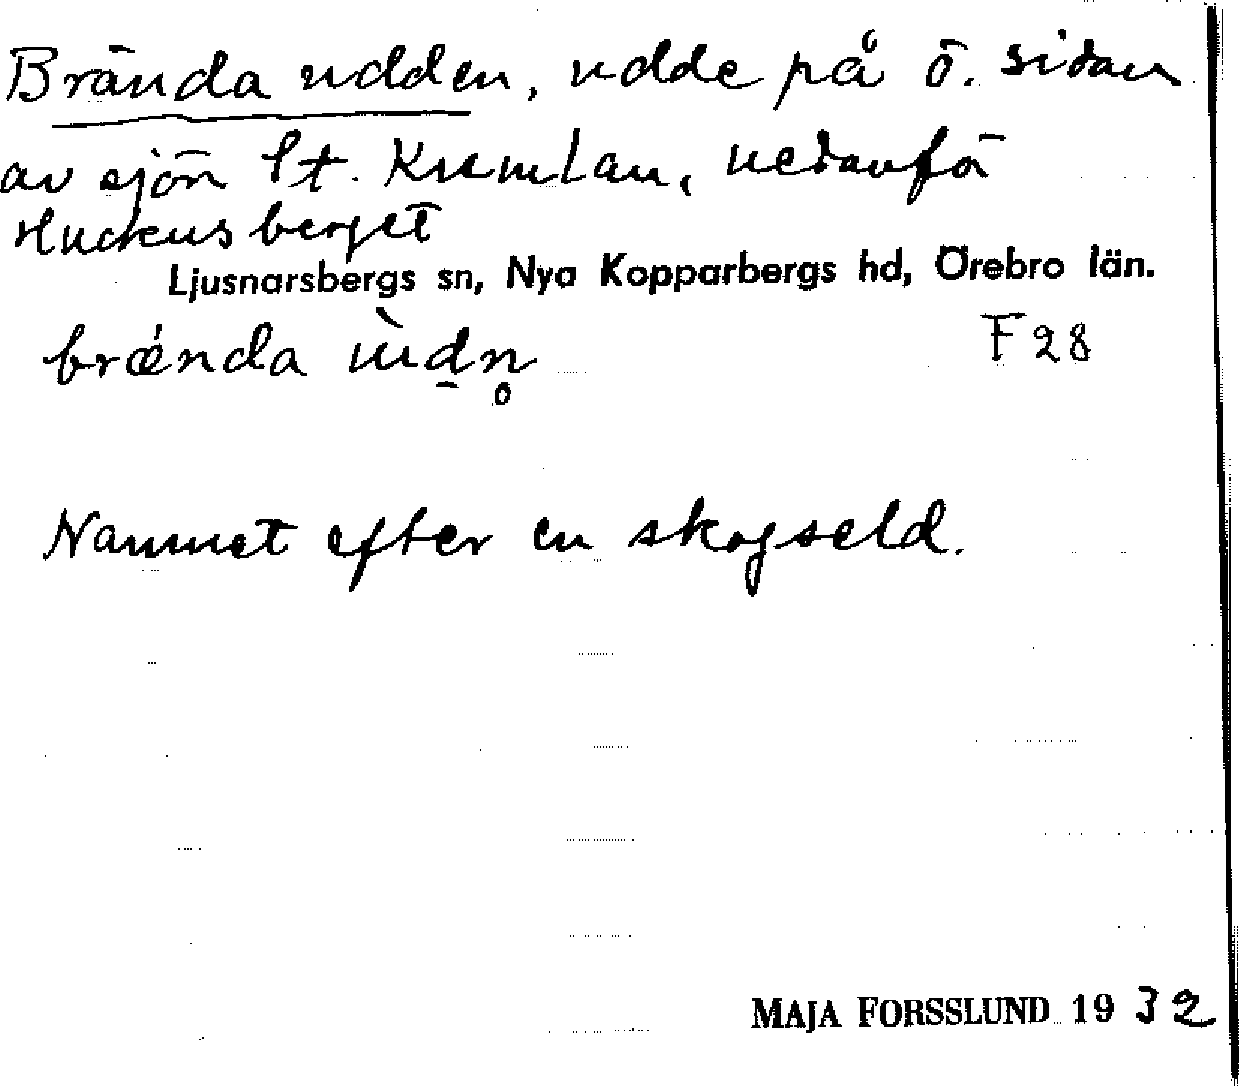 Brända udden, udde på ö. sidan
av sjön St. Kumlan, nedanför
Huckusberget
Ljusnarsbergs sn, Nya Kopparbergs hd, Örebro län.
brǽnda ùdn̥
F 28
Namnet efter en skogseld.
MAJA FORSSLUND 1932